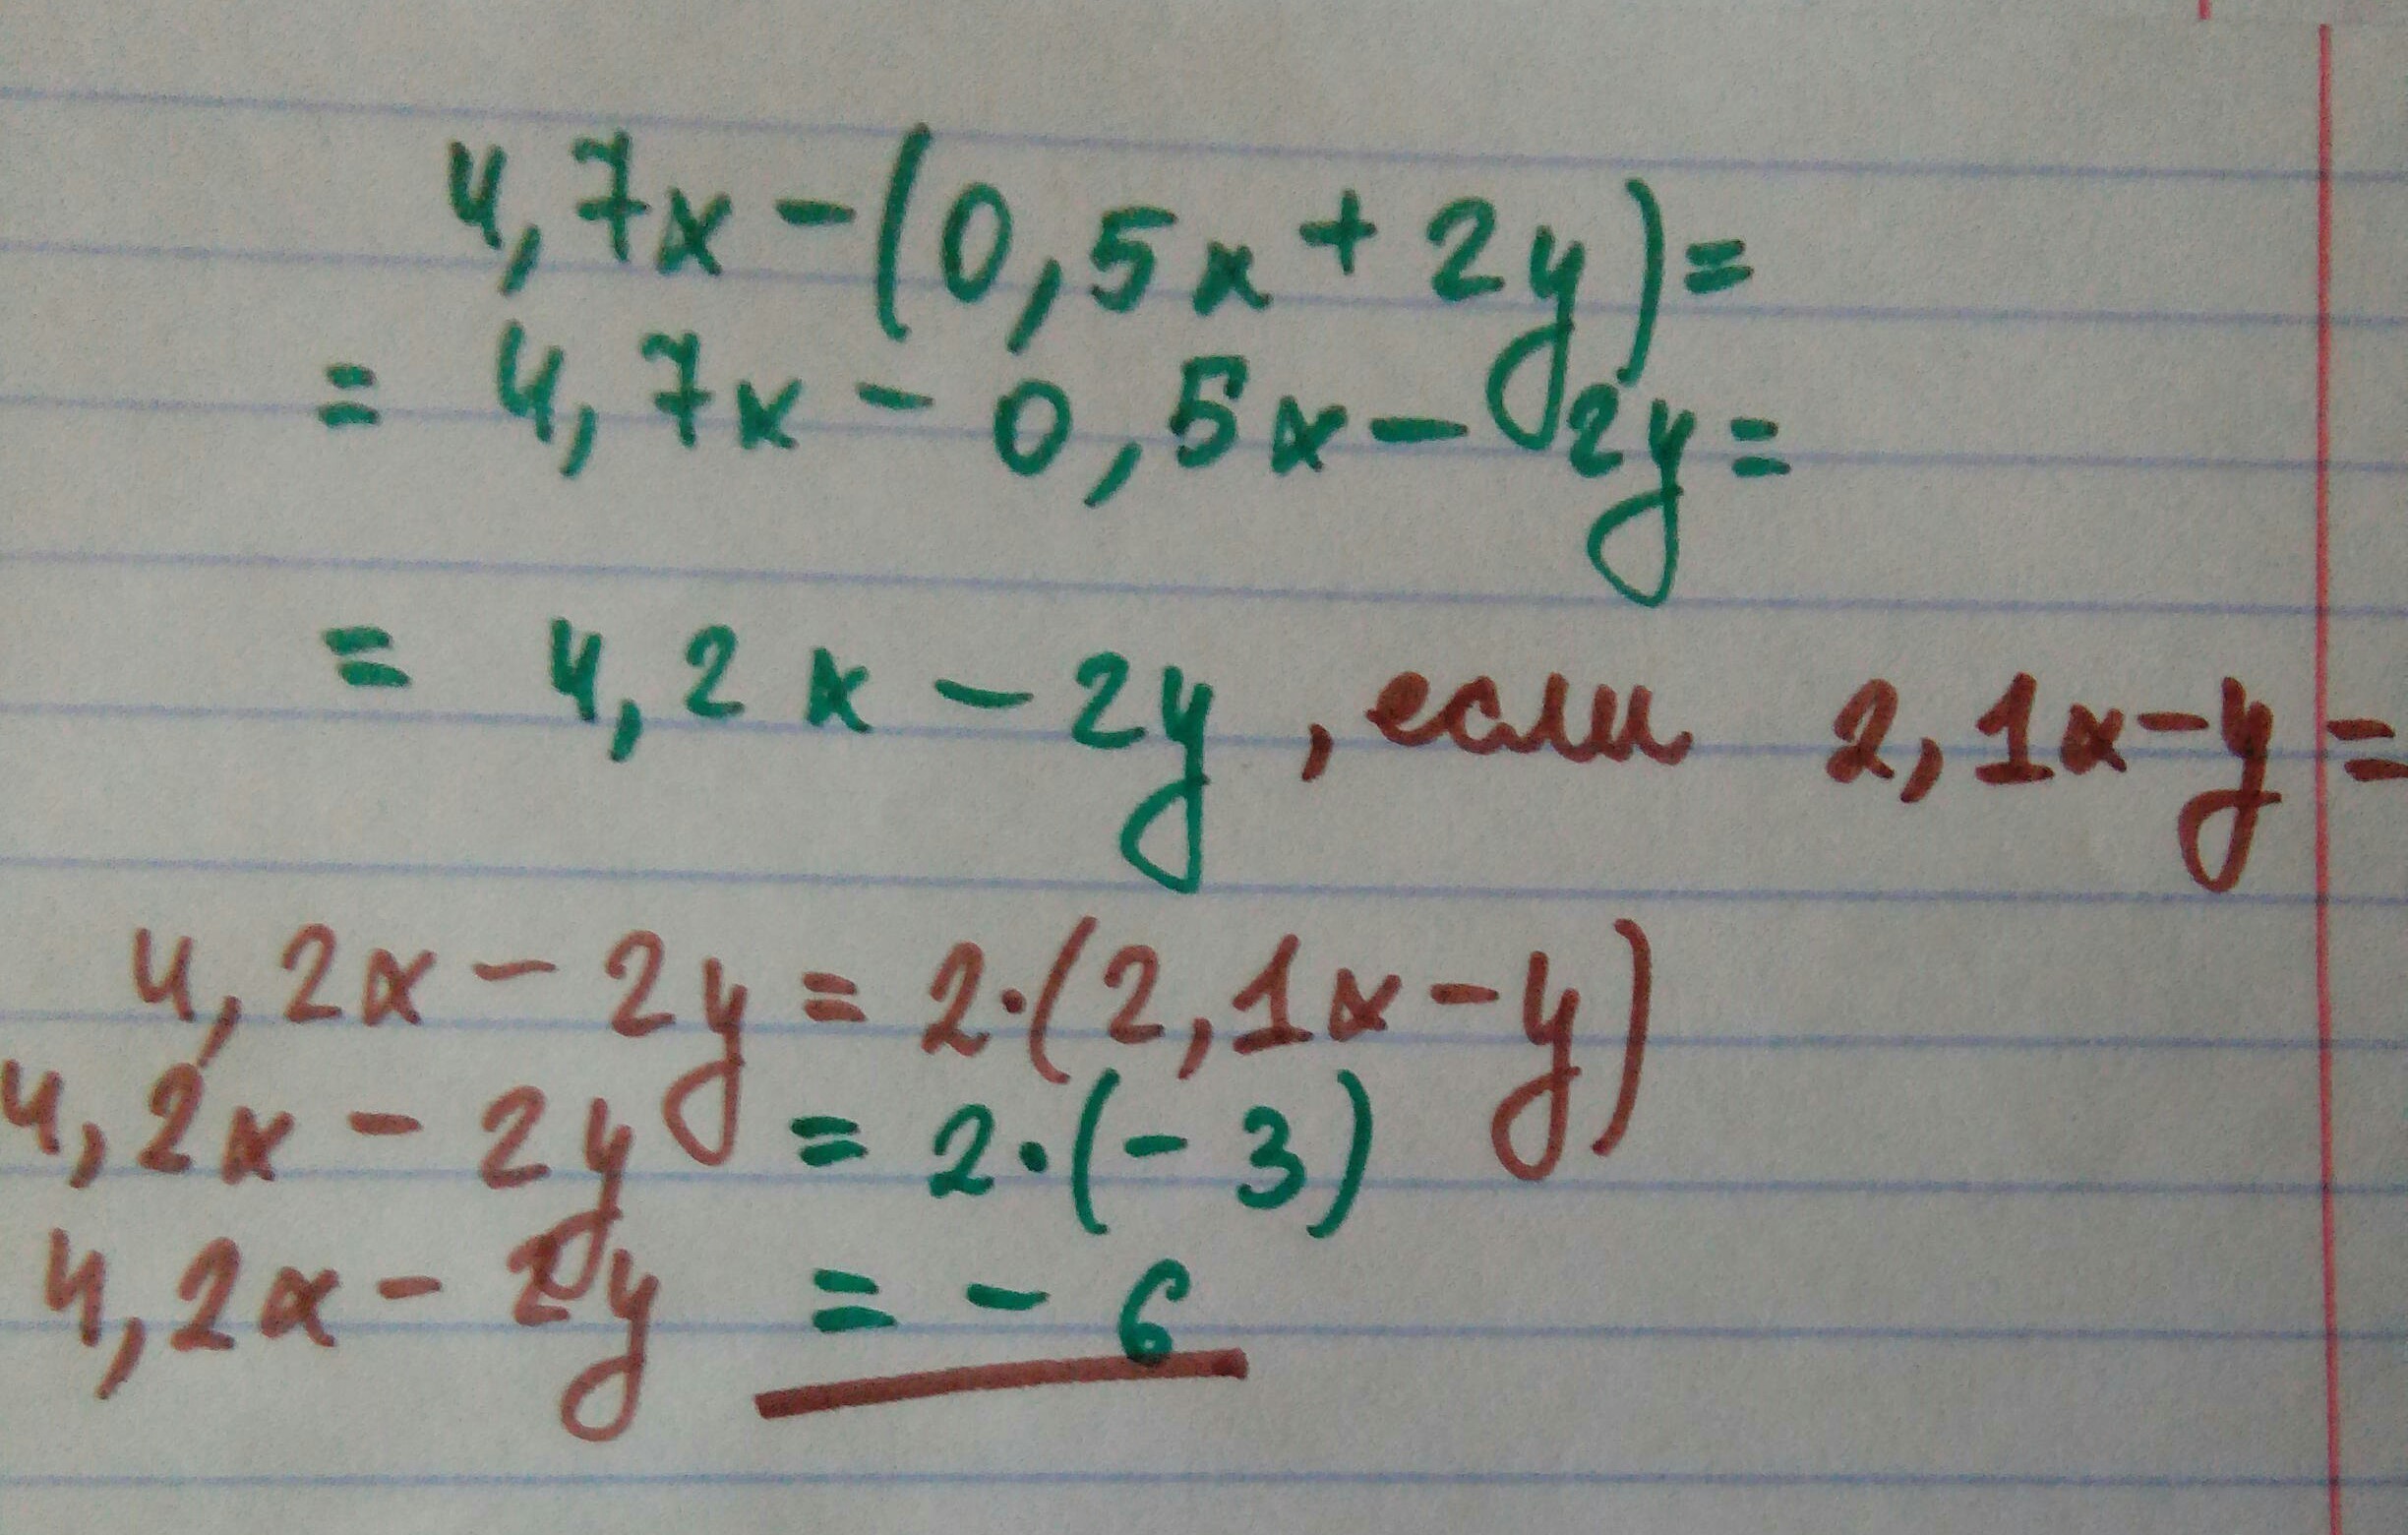 4,7x-(0,5x+2y)=
= 4,7x-0,5x-2y=
= 4,2x-2y, если 2,1x-y=
4,2x-2y=2·(2,1x-y)
4,2x-2y=2·(-3)
4,2x-2y=-6